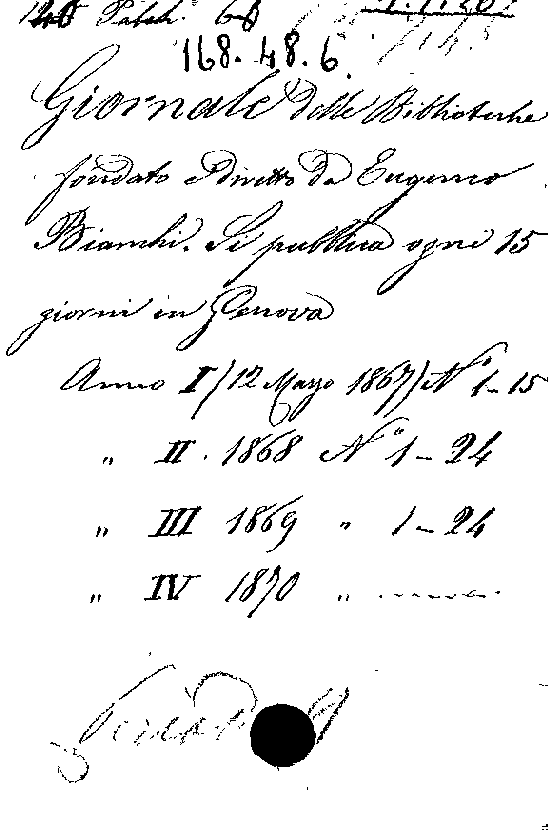 168. 48. 6.
Giornale delle Biblioteche
fondato e diretto da Eugenio
Bianchi. Si pubblica ogni 15
giorni in Genova
Anno I (12 Marzo 1867) N.° 1-15
„ II. 1868 N.° 1-24
„ III 1869 „ 1-24
„ IV 1870 „ ........